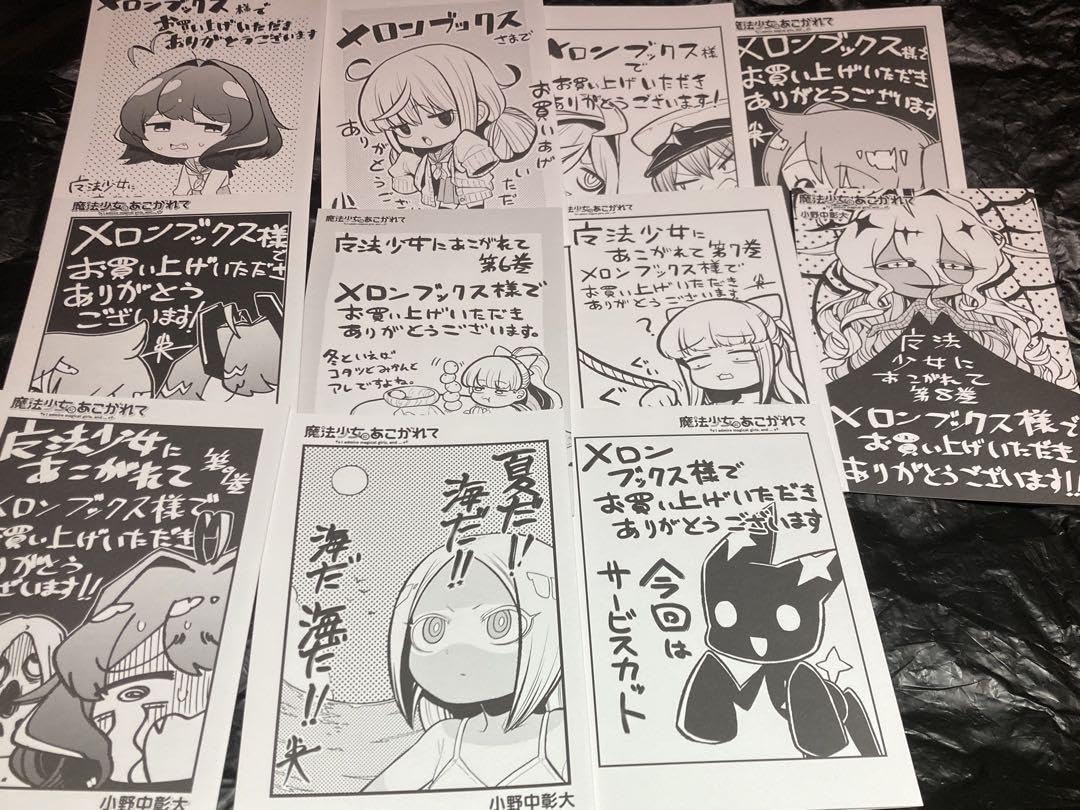 メロンブックス様で
お買い上げいただき
ありがとうございます
魔法少女に
メロンブックスさまで
お買いあげ
いただ
ありがとうござい
メロンブックス様
で
お買い上げいただき
ありがとうございます!
魔法少女にあこがれて
メロンブックス様で
お買い上げいただき
ありがとうございます
魔法少女にあこがれて
メロンブックス様
で
お買い上げいただき
ありがとう
ございます!
魔法少女にあこがれて
魔法少女にあこがれて
第6巻
メロンブックス様で
お買い上げいただき
ありがとうございます。
冬といえば
コタツとみかんと
アレですよね。
魔法少女に
あこがれて 第7巻
メロンブックス様で
お買い上げいただき
ありがとうございます
?
ぐい
ぐい
魔法少女にあこがれて
小野中彰大
魔法
少女に
あこがれて
第8巻
メロンブックス様で
お買い上げいただき
ありがとうございます!!
魔法少女にあこがれて
魔法少女に
あこがれて
メロンブックス様で
お買い上げいただき
ありがとう
ございます!!
小野中彰大
魔法少女にあこがれて
夏だ!!
海だ!!
海だ海だ!!
小野中彰大
魔法少女にあこがれて
メロン
ブックス様で
お買い上げいただき
ありがとうございます
今回は
サービスカット